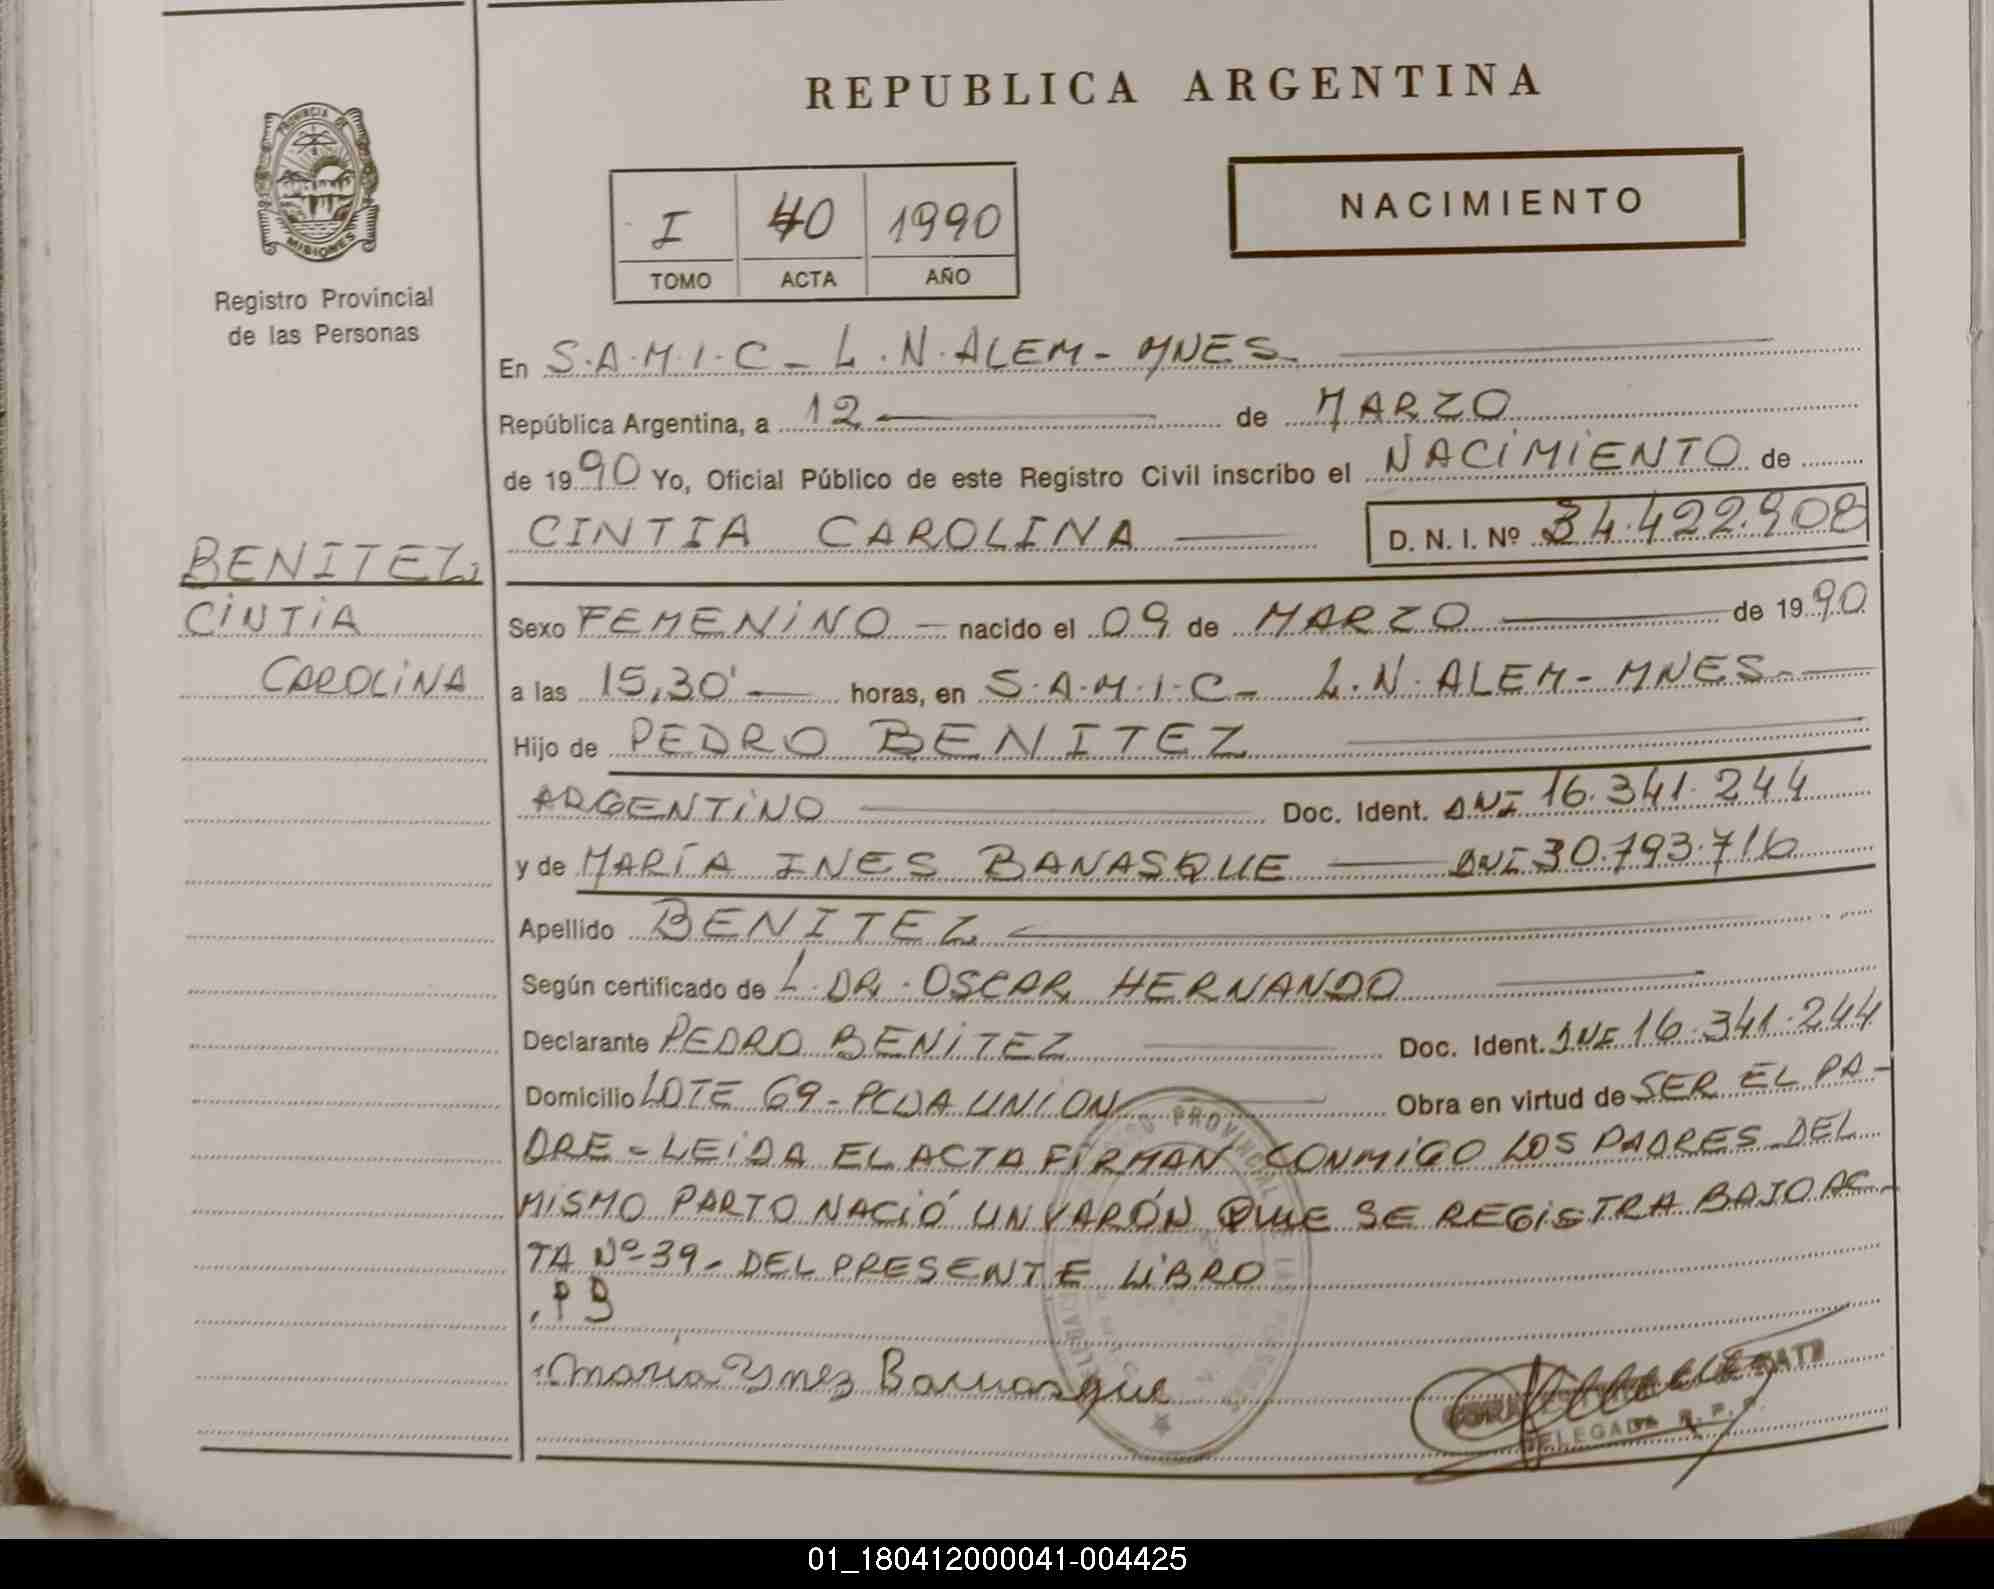 REPUBLICA ARGENTINA
PROVINCIA DE
MISIONES
Registro Provincial
de las Personas
I 40 1990
TOMO ACTA AÑO
NACIMIENTO
En S.A.M.I.C - L.N.ALEM - MNES
República Argentina, a 12 de MARZO
de 1990 Yo, Oficial Público de este Registro Civil inscribo el NACIMIENTO de
CINTIA CAROLINA D. N. I. Nº 34.422.908
BENITEZ,
CINTIA
CAROLINA
Sexo FEMENINO nacido el 09 de MARZO de 1990
a las 15,30' horas, en S.A.M.I.C - L.N.ALEM - MNES
Hijo de PEDRO BENITEZ
ARGENTINO Doc. Ident. DNI 16.341.244
y de MARÍA INES BANASQUE DNI 30.793.716
Apellido BENITEZ
Según certificado de L. DR. OSCAR HERNANDO
Declarante PEDRO BENITEZ Doc. Ident. DNI 16.341.244
Domicilio LOTE 69 - PCDA UNION Obra en virtud de SER EL PA-
DRE - LEIDA EL ACTA FIRMAN CONMIGO LOS PADRES DEL
MISMO PARTO NACIÓ UN VARÓN QUE SE REGISTRA BAJO AC-
TA Nº 39 - DEL PRESENTE LIBRO
P B
maria Ynez Banasque
DELEGADA R. P. P.
01_180412000041-004425